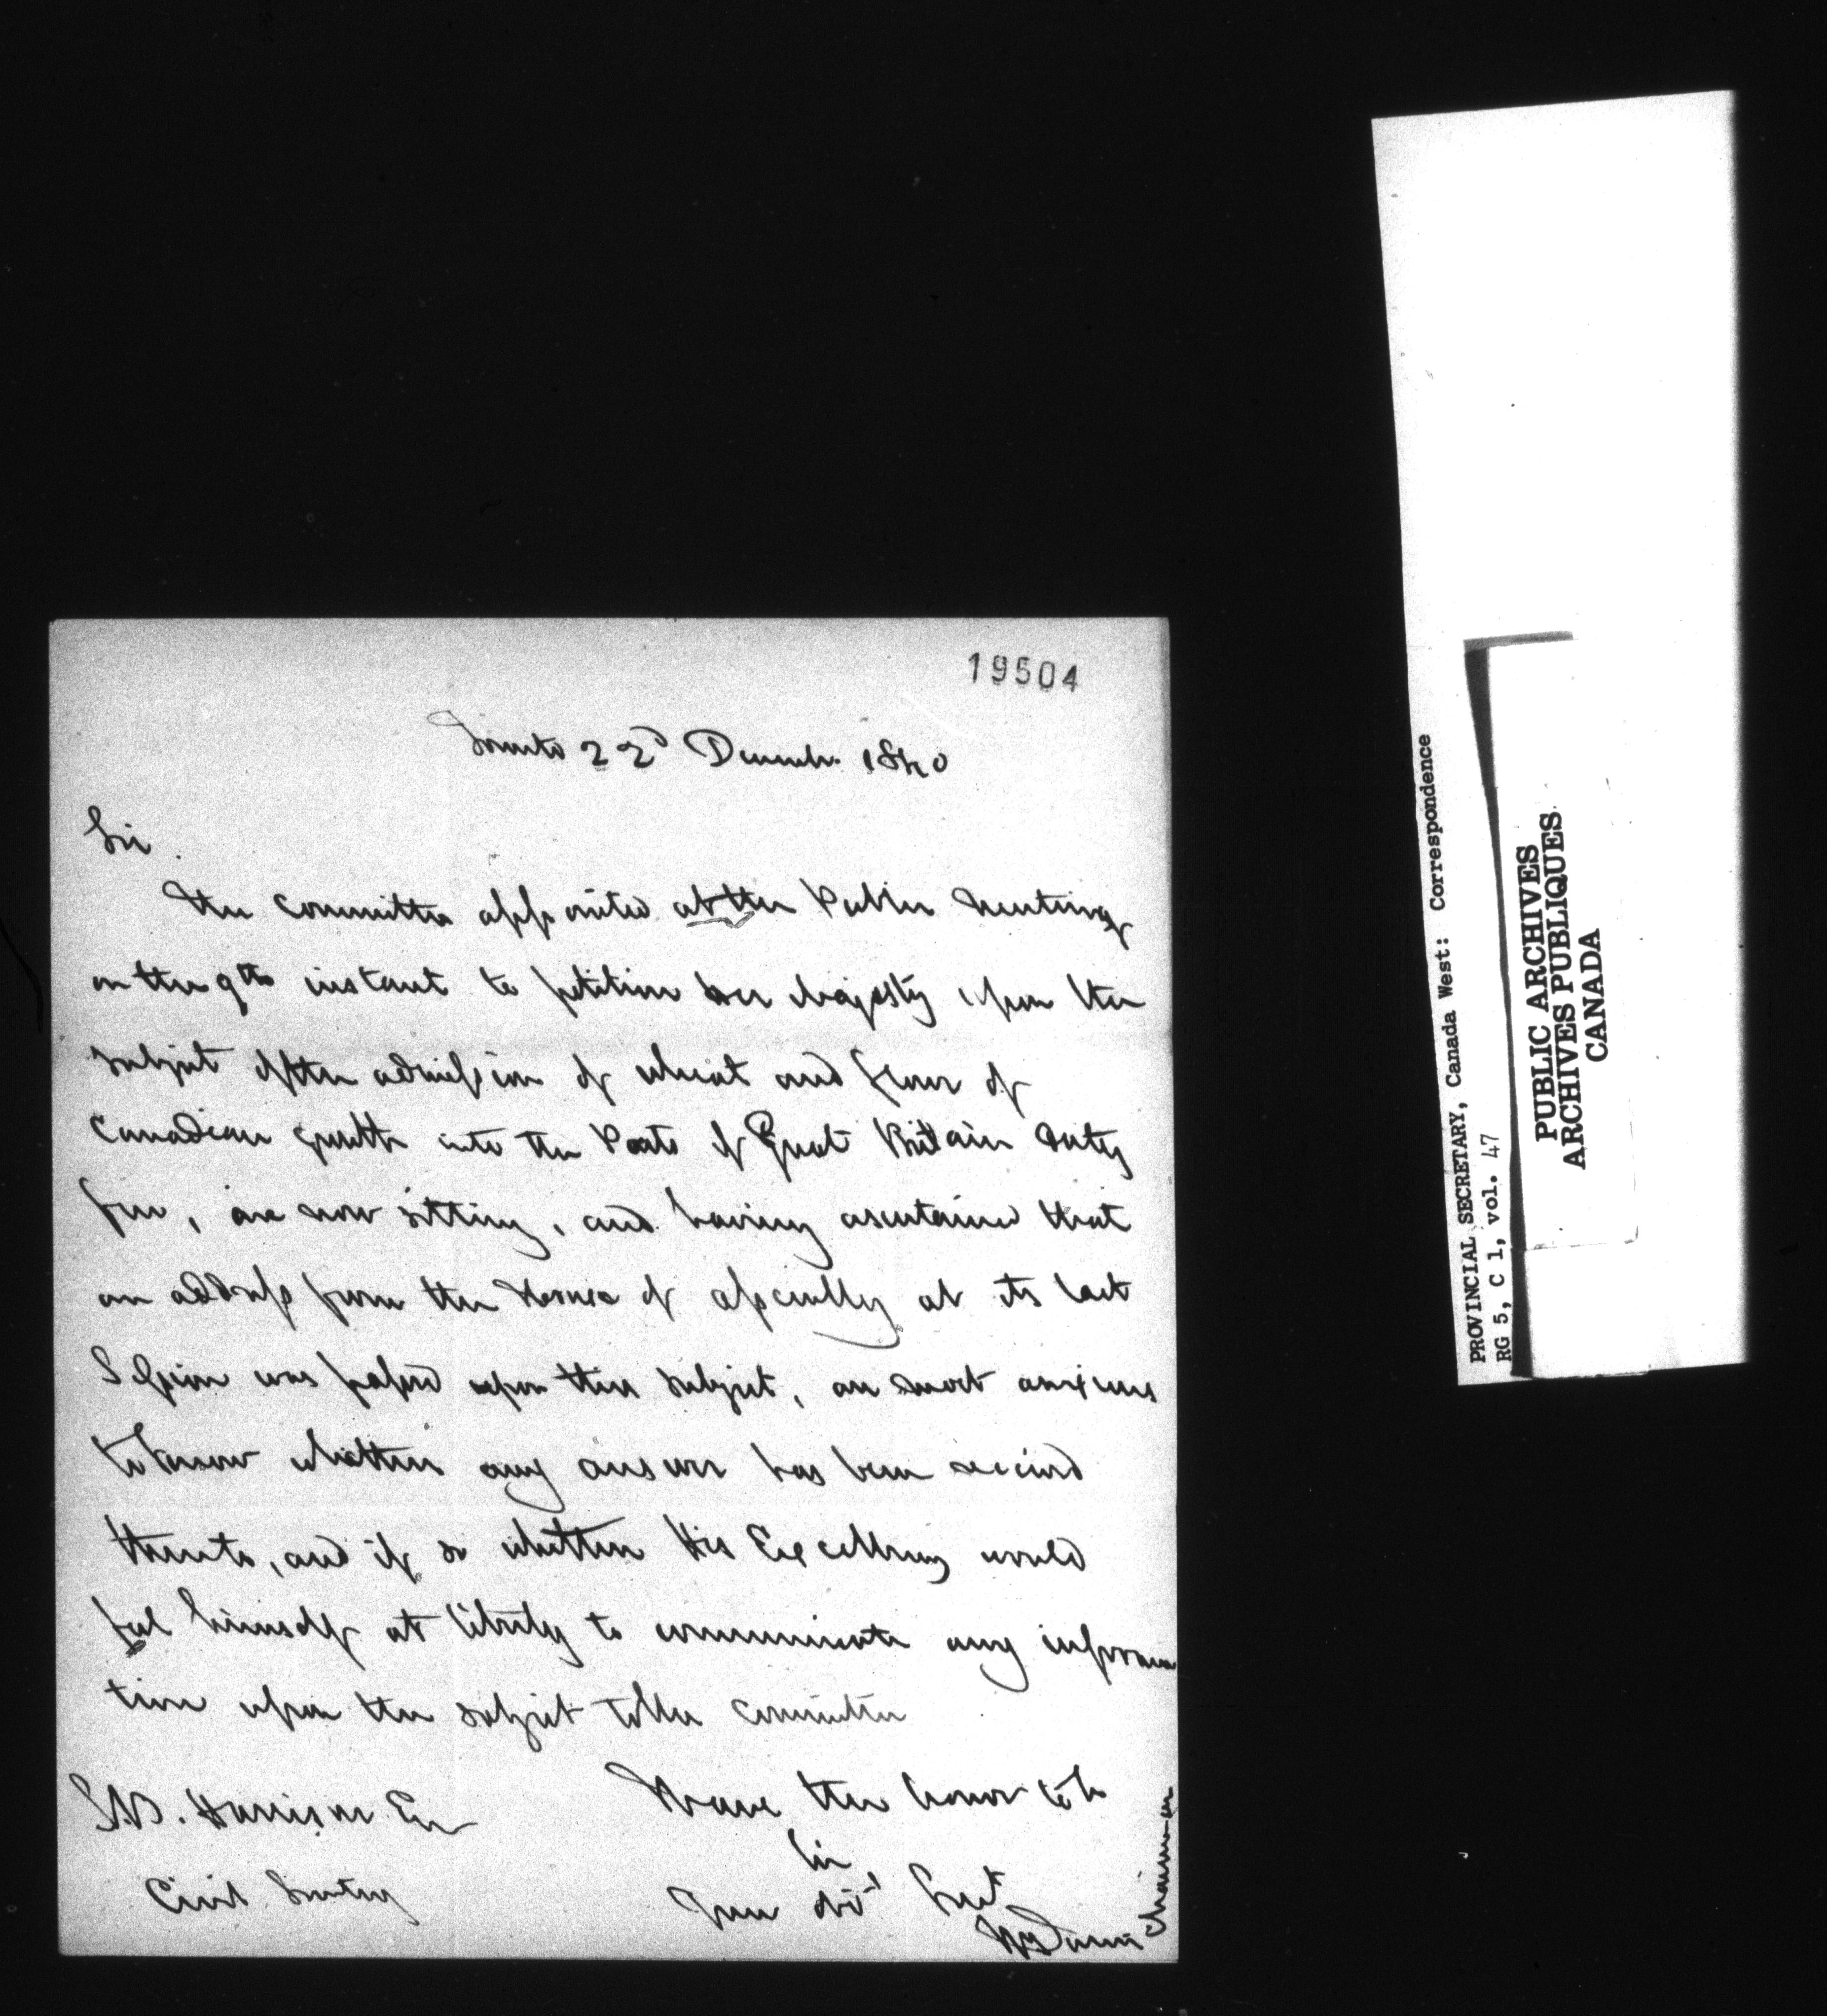 19504
Toronto 22d Decembr. 1840
Sir
The Committee appointed at the Public Meeting
on the 9th instant to petition her Majesty upon the
subject of the admission of wheat and flour of
Canadian growth into the Ports of Great Britain duty
free, are now sitting, and having ascertained that
an address from the House of assembly at its last
Session was passed upon this subject, are most anxious
to know whether any answer has been received
thereto, and if so whether His Excellency would
feel himself at liberty to communicate any informa
tion upon the subject to the Committee
I have the honor to be
Sir,
Your obt Servt
Chairman
S.B. Harrison Esq
Civil Secretary
PROVINCIAL SECRETARY, Canada West: Correspondence
RG 5, C 1, vol. 47
PUBLIC ARCHIVES
ARCHIVES PUBLIQUES
CANADA